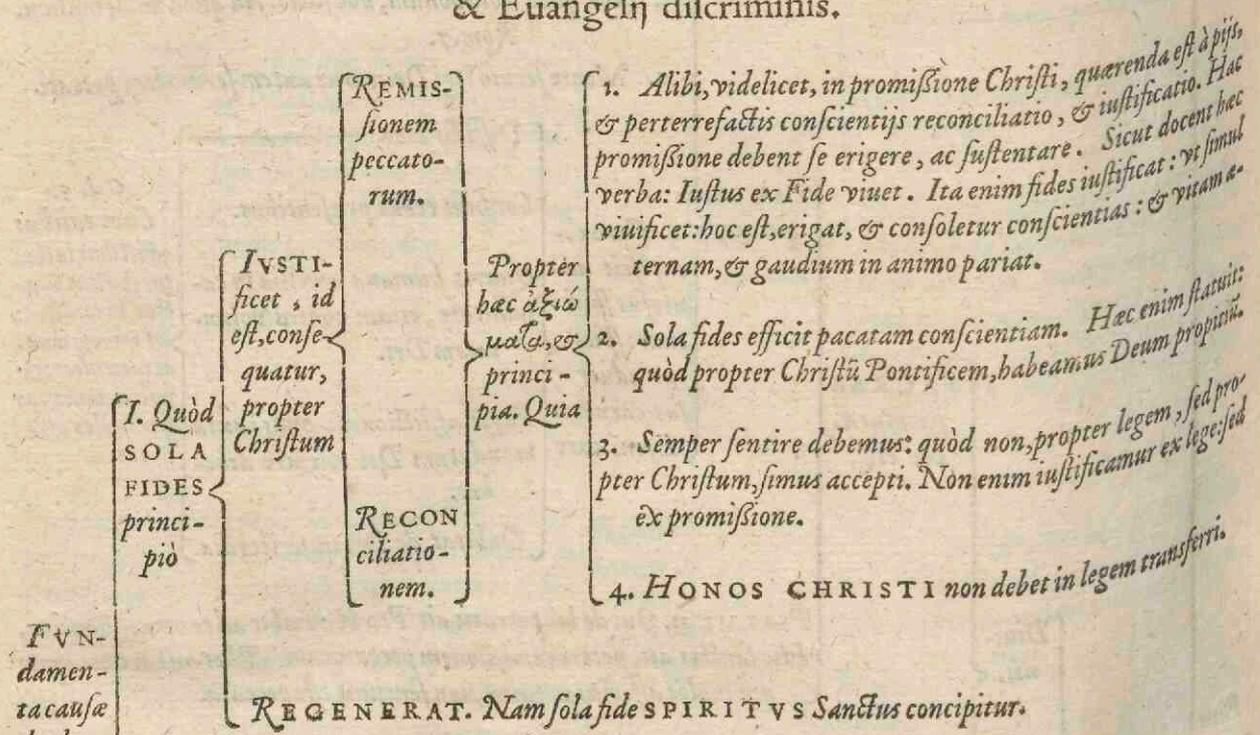 & Euangelij discriminis.
FVN-
damen-
ta causæ
I. Quòd
SOLA
FIDES
princi-
piò
IVSTI-
ficet, id
est, conse-
quatur,
propter
Christum
REMIS-
sionem
peccato-
rum.
RECON
ciliatio-
nem.
Propter
hæc ἀξιώ
ματα, &
princi-
pia. Quia
1. Alibi, videlicet, in promißione Christi, quærenda est à pijs,
& perterrefactis conscientijs reconciliatio, & iustificatio. Hac
promißione debent se erigere, ac sustentare. Sicut docent hæc
verba: Iustus ex Fide viuet. Ita enim fides iustificat: vt simul
viuificet: hoc est, erigat, & consoletur conscientias: & vitam æ-
ternam, & gaudium in animo pariat.
2. Sola fides efficit pacatam conscientiam. Hæc enim statuit:
quòd propter Christū Pontificem, habeamus Deum propitiū.
3. Semper sentire debemus: quòd non, propter legem, sed pro-
pter Christum, simus accepti. Non enim iustificamur ex lege: sed
ex promißione.
4. HONOS CHRISTI non debet in legem transferri.
REGENERAT. Nam sola fide SPIRITVS Sanctus concipitur.